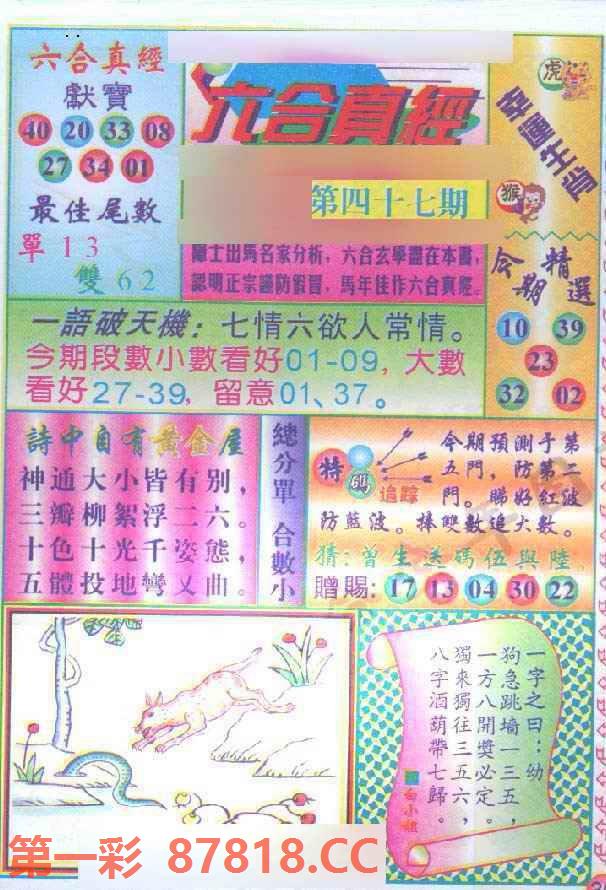 六合真經
獻寶
40 20 33 08
27 34 01
最佳尾數
單 1 3
雙 6 2
六合真經
第四十七期
隱士出馬名家分析，六合玄學盡在本書，
認明正宗謹防假冒，馬年佳作六合真經。
虎
幸運生肖
猴
今期精選
10 39
23
32 02
一語破天機：七情六欲人常情。
今期段數小數看好01-09，大數
看好27-39，留意01、37。
詩中自有黃金屋
神通大小皆有別，
三瓣柳絮浮二六。
十色十光千姿態，
五體投地彎又曲。
總分單
合數小
特碼
追踪
今期預測于第
五門，防第二
門。睇好紅波
防藍波。捧雙數追大數。
猜：曾生送碼伍與陸
贈賜：17 13 04 30 22
一字之曰：幼
狗急跳墻一三五，
一方八開獎必定。
獨來獨往三五六，
八字酒葫帶七歸。
白小姐
第一彩 87818.CC